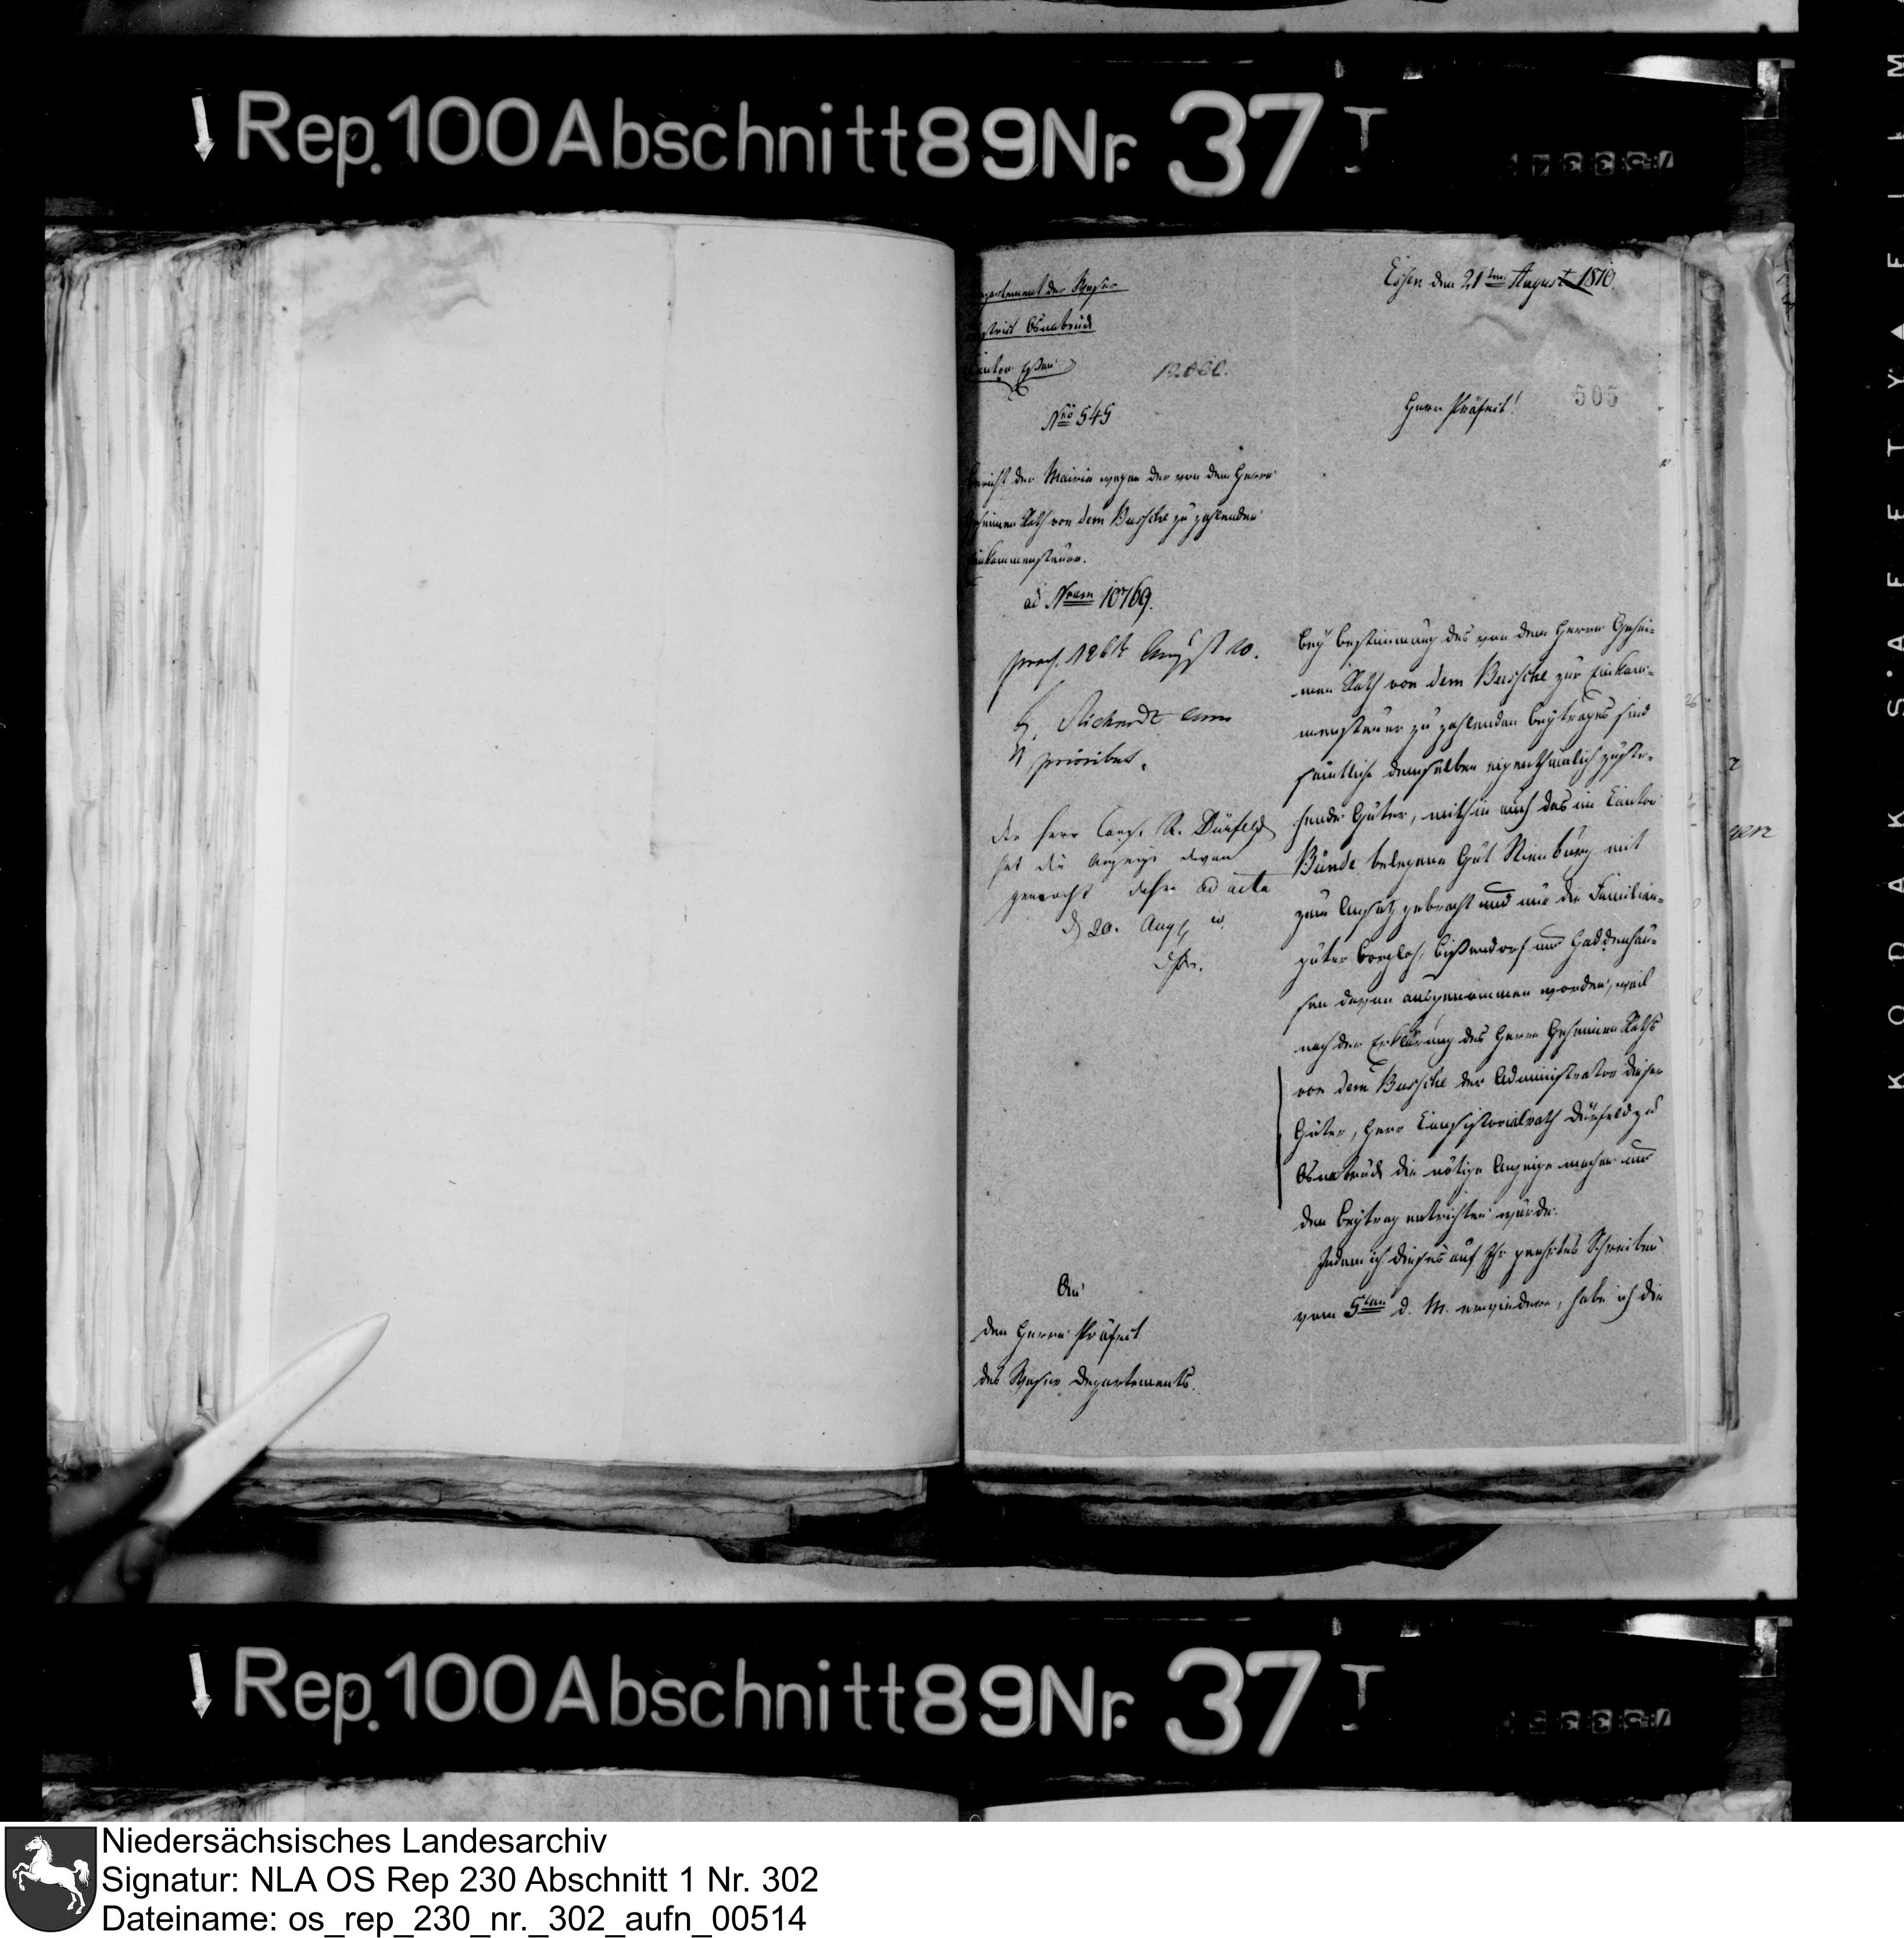 Rep. 100 Abschnitt 89 Nr. 37 I
Departement der Weser
District Osnabrück
Canton Essen
Essen den 21ten August 1810.
No 545
505
Herr Präfect!
Bericht der Mairie wegen der von dem Herrn
Geheimen Rath von dem Bussche zu zahlenden
Einkommensteuer.
ad Nrum 10769.
praes. 26t August 10.
H. Richardt cum
prioribus.
Der Herr Cons. R. Dürfeld
hat die Anzeige davon
gemacht daher ad acta
20. Aug
Bey Bestimmung des von dem Herrn Gehei-
men Rath von dem Bussche zur Einkom-
mensteuer zu zahlenden Beytrages sind
sämtliche demselben eigenthümlich zuste-
hende Güter, mithin auch das im Canton
Bünde belegene Gut Nienburg mit
zum Ansatz gebracht und nur die Familien-
güter Borgloh, Bissendorf und Haddenhau-
sen davon ausgenommen worden, weil
nach der Erklärung des Herrn Geheimen Raths
von dem Bussche der Administrator dieser
Güter, Herr Consistorialrath Dürfeld zu
Osnabrück die nötige Anzeige machen und
den Beytrag entrichten würde.
Indem ich dieses auf Ihr geehrtes Schreiben
vom 5ten d. M. erwiedere, habe ich die
An
den Herrn Präfect
des Weser Departements.
Rep. 100 Abschnitt 89 Nr. 37 I
KODAK SAFETY FILM
Niedersächsisches Landesarchiv
Signatur: NLA OS Rep 230 Abschnitt 1 Nr. 302
Dateiname: os_rep_230_nr._302_aufn_00514